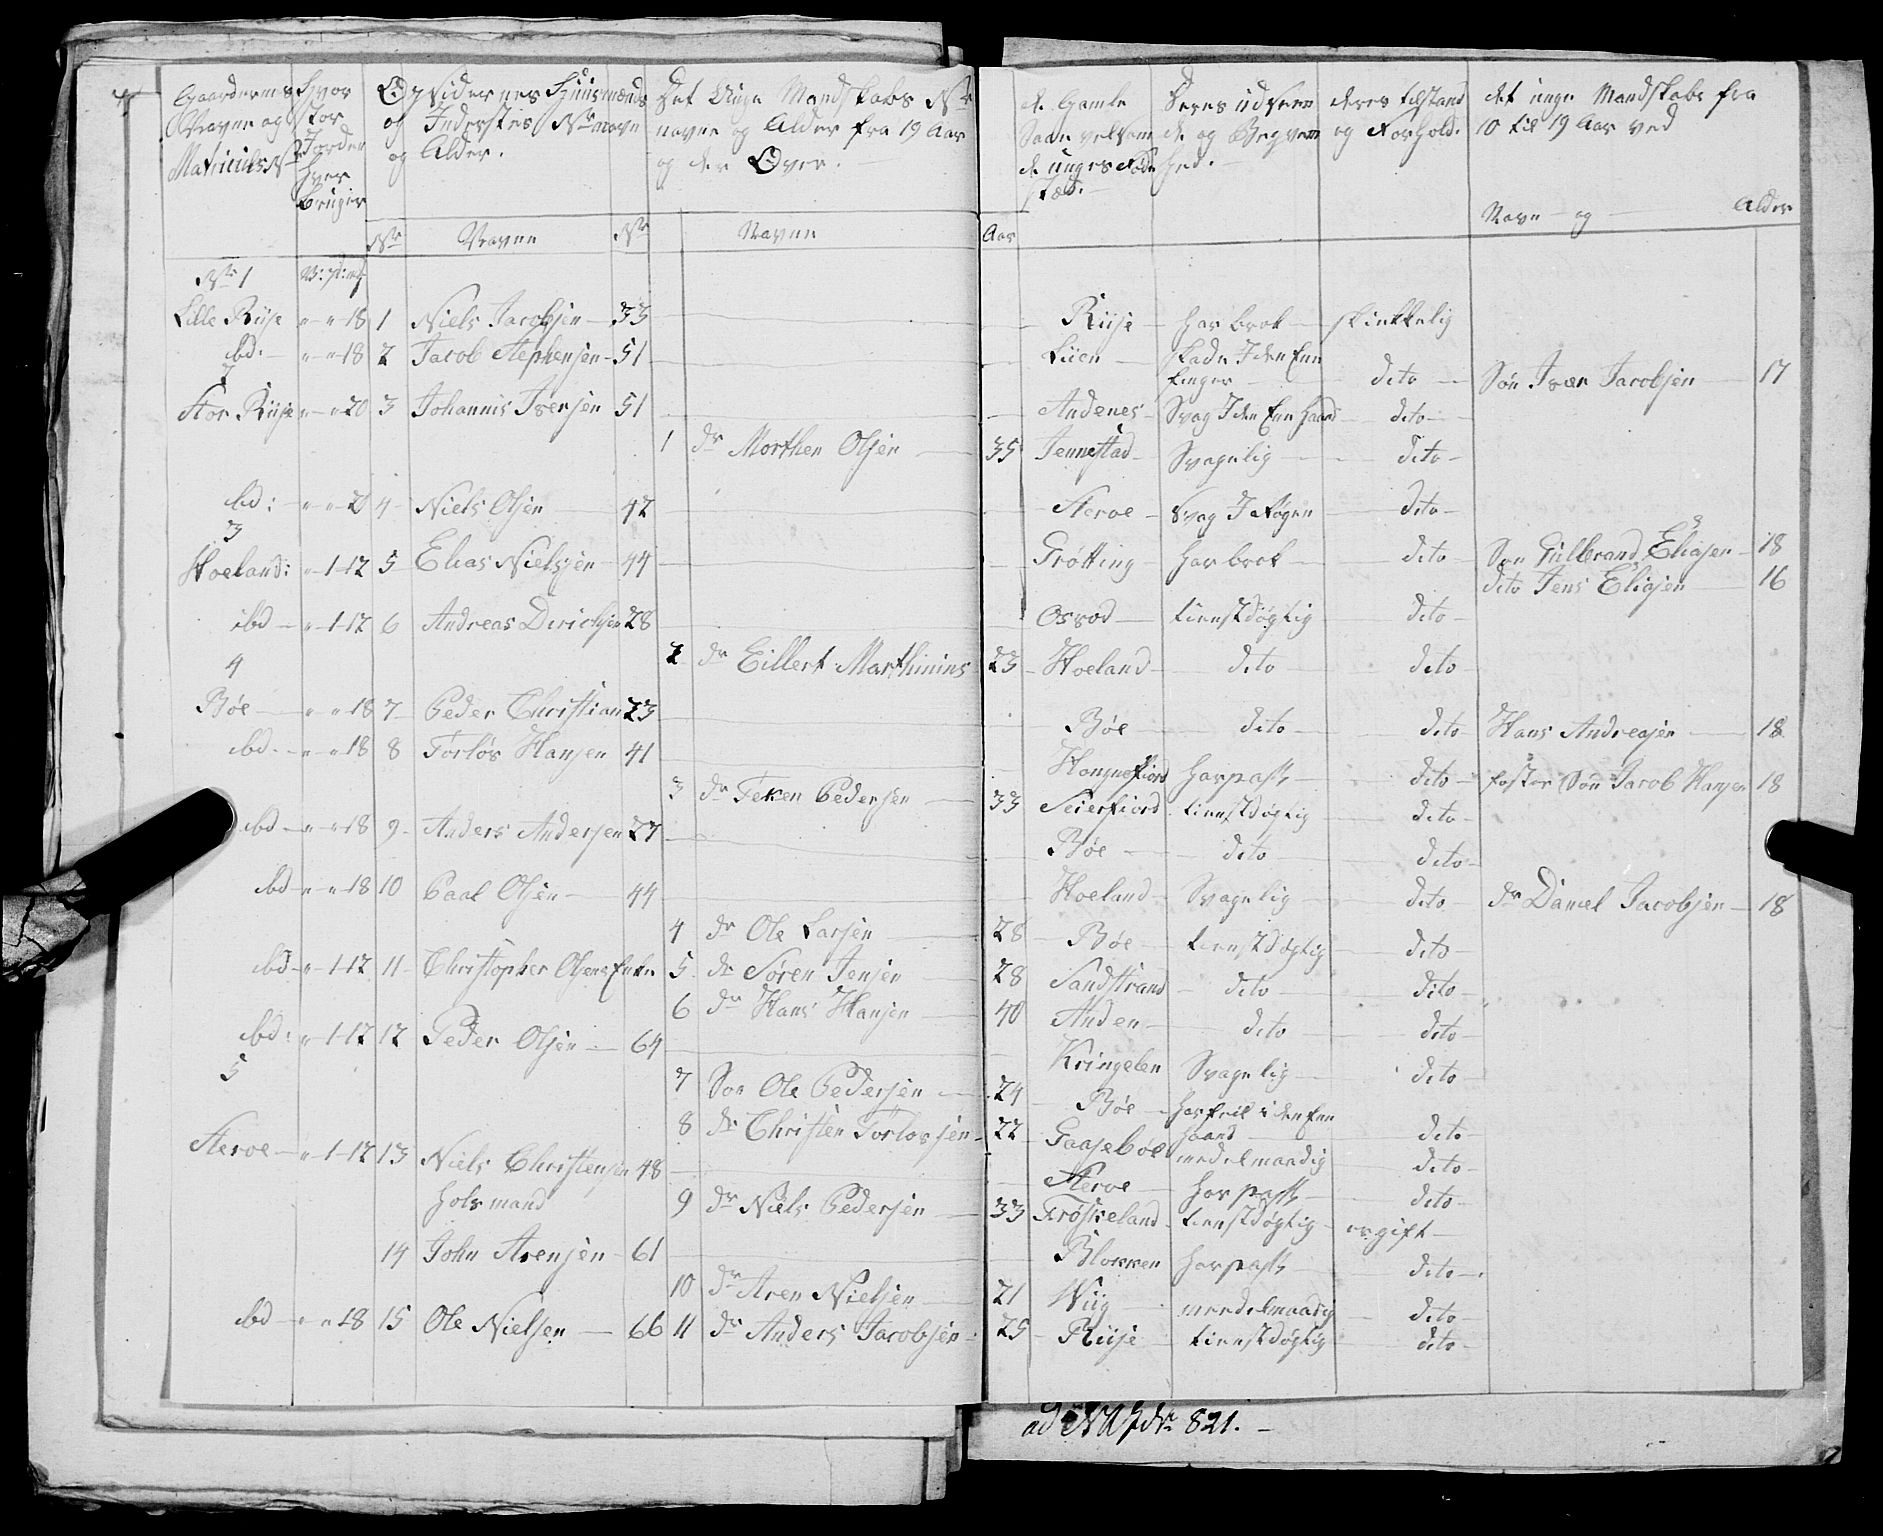 Gaardernes Navne og Matriculs Nr
Hvor stor Jorder hver bruger
Opsidernes Huusmænds og Inderstes Nr navn og Alder.
Det Unge Mandskabs Nr navne og Alder fra 19 Aar og der Over.
de Gamle Saavelsom de unges Føde stæd.
Deres udseende og Begvemhed.
deres tilstand og Forhold.
det unge Mandskabs fra 10 til 19 Aar ved
Nr Navne Nr Navne Aar Navn og Alder
Nr 1
Lille Riise " " 18 1 Niels Jacobsen 33 Riise har brok skikkelig
ibd. " " 18 2 Jacob Stephensen 51 Liien skade I den Enn finger dito Søn Iver Jacobsen 17
2
Stor Riise " " 20 3 Johannis Iversen 51 Andenes Svag I den Enn Haand dito
1 dr Morthen Olsen 35 Jennestad Svagelig dito
ibd: " " 20 4 Niels Olsen 42 Steroe svag I Øgen dito
3
Hoeland: " 1 12 5 Elias Nielsen 44 Frøtting har brok dito Søn Gulbrand Eliasen 18
dito Jens Eliasen 16
ibd " 1 12 6 Andreas Dirichsen 28 Osvod tienstdøgtig dito
2 dr Eillert Marthinius 23 Hoeland dito dito
4
Bøe " " 18 7 Peder Christian 23 Bøe dito dito Hans Andreasen 18
ibd. " " 18 8 Torløs Hansen 41 Hongnefiord har pass dito foster Søn Jacob Hansen 18
3 dr Teken Pedersen 33 Seierfiord tienstdøgtig dito
ibd " " 18 9 Anders Andersen 27 Bøe dito dito
ibd " " 18 10 Paal Olsen 44 Hoeland Svagelig dito dr Daniel Jacobsen 18
4 dr Ole Larsen 28 Bøe tienstdøgtig dito
ibd " 1 12 11 Christopher Olsens Enke 5 dr Søren Jensen 28 Sandstrand dito dito
6 dr Hans Hansen 40 Anden dito dito
ibd: " 1 12 12 Peder Olsen 64 Kringelen Svagelig dito
7 Søn Ole Pedersen 24 Bøe har feil i den Enn haand dito
5
8 dr Christen Torlossen 22 Gaasebøe medelmaadig dito
Steroe " 1 12 13 Niels Christensen 48 Steroe har pass dito
9 dr Niels Pedersen 33 Frøskeland tienstdøgtig er gift
14 John Arensen 61 Blokken har pass dito
10 dr Aren Nielsen 21 Wiig medelmaadig dito
ibd " " 18 15 Ole Nielsen 66 11 dr Anders Jacobsen 25 Riise tienstdøgtig dito
821.